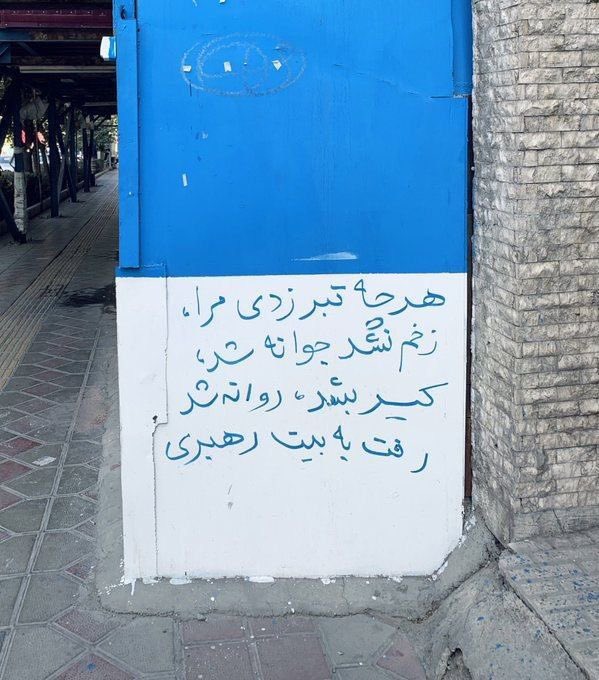 هرچه تبر زدی مرا،
زخم نشد جوانه شد،
کیر بشد، روانه شد
رفت به بیت رهبری